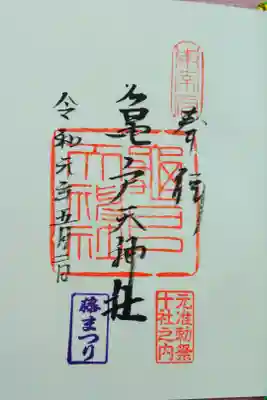 奉拝
亀戸天神社
令和元年五月二日
元准勅祭
十社之内
藤まつり